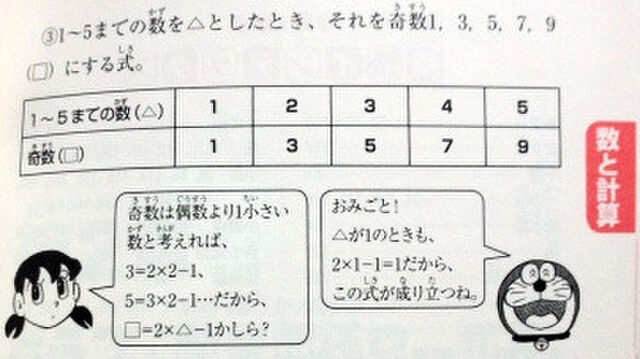 ③1~5までの数を△としたとき、それを奇数1, 3, 5, 7, 9
(□)にする式。
1~5までの数(△) 1 2 3 4 5
奇数(□) 1 3 5 7 9
数と計算
奇数は偶数より1小さい
数と考えれば、
3=2×2−1、
5=3×2−1…だから、
□=2×△−1かしら?
おみごと!
△が1のときも、
2×1−1=1だから、
この式が成り立つね。